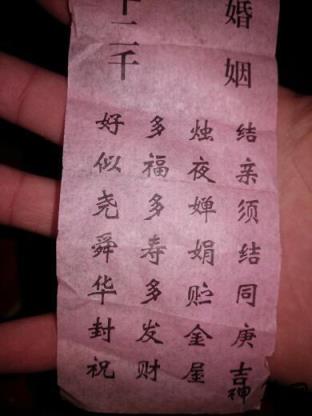 婚姻
十二千
结亲须结同庚吉神
烛夜婵娟贮金屋
多福多寿多发财
好似尧舜华封祝